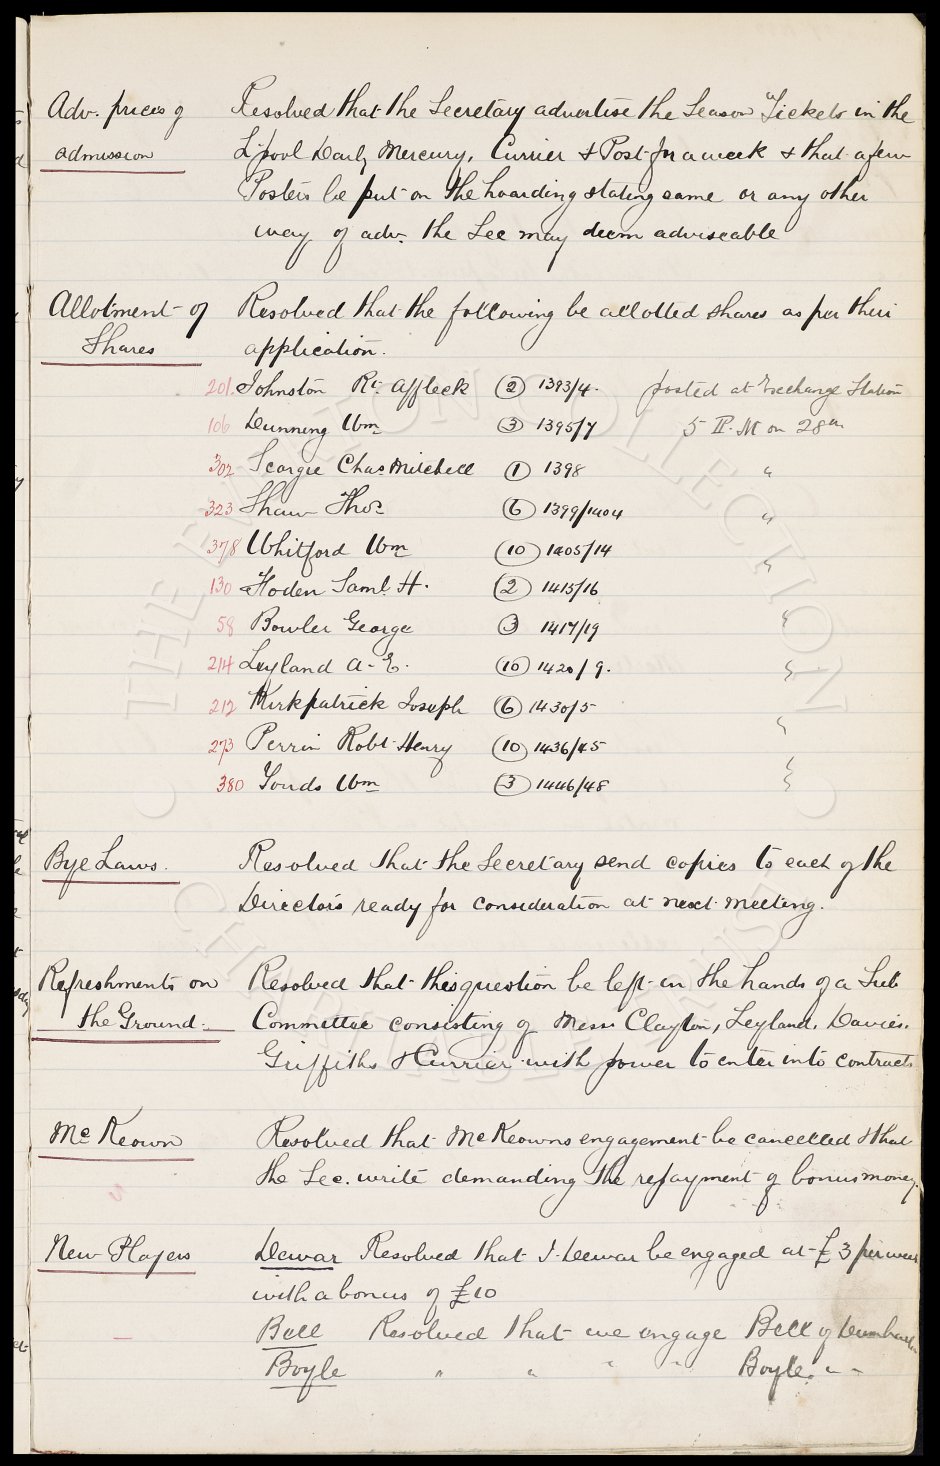 Adv. prices of Resolved that the Secretary advertise the Season Tickets in the
admission L'pool Daily Mercury, Currier & Post for a week & that a few
Posters be put on the hoarding stating same or any other
way of adv. the Sec may deem adviseable
Allotment of Resolved that the following be allotted shares as per their
Shares application.
201. Johnston Rt. Affleck (2) 1393/4. posted at Exchange Station
106 Dunning Wm (3) 1395/7 5 P.M on 28th
302 Scorgie Chas Mitchell (1) 1398 "
323 Shaw Thos (6) 1399/1404 "
378 Whitford Wm (10) 1405/14 "
130 Hoden Saml. H. (2) 1415/16
58 Bowler George (3) 1417/19 "
214 Leyland A. E. (10) 1420/9. "
212 Kirkpatrick Joseph (6) 1430/5 "
273 Perrin Robt Henry (10) 1436/45 "
380 Yonds Wm (3) 1446/48 "
Bye Laws. Resolved that the Secretary send copies to each of the
Directors ready for consideration at next meeting.
Refreshments on Resolved that this question be left in the hands of a Sub
the Ground. Committee consisting of Messrs Clayton, Leyland, Davies.
Griffiths & Currier with power to enter into contracts
Mc Keown Resolved that McKeowns engagement be cancelled & that
the Sec. write demanding the repayment of bonus money.
New Players Dewar Resolved that J. Dewar be engaged at £3 per week
with a bonus of £10
Bell Resolved that we engage Bell of Dumbarton
Boyle " " " " Boyle. " "
THE EVERTON COLLECTION